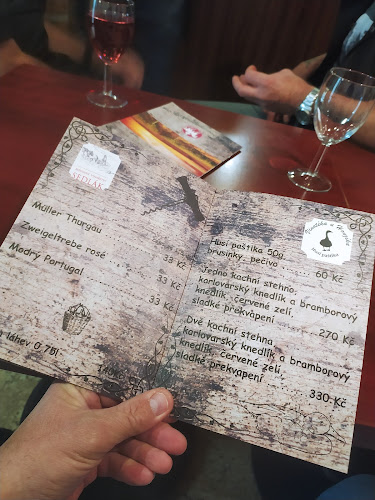 SEDLÁK
Müller Thurgau
33 Kč
Zweigeltrebe rosé
33 Kč
Modrý Portugal
33 Kč
láhev 0,75l
Husí paštika 50g,
brusinky, pečivo
60 Kč
Jedno kachní stehno,
karlovarský knedlík a bramborový
knedlík, červené zelí,
sladké překvapení
270 Kč
Dvě kachní stehna,
karlovarský knedlík a bramborový
knedlík, červené zelí,
sladké překvapení
330 Kč